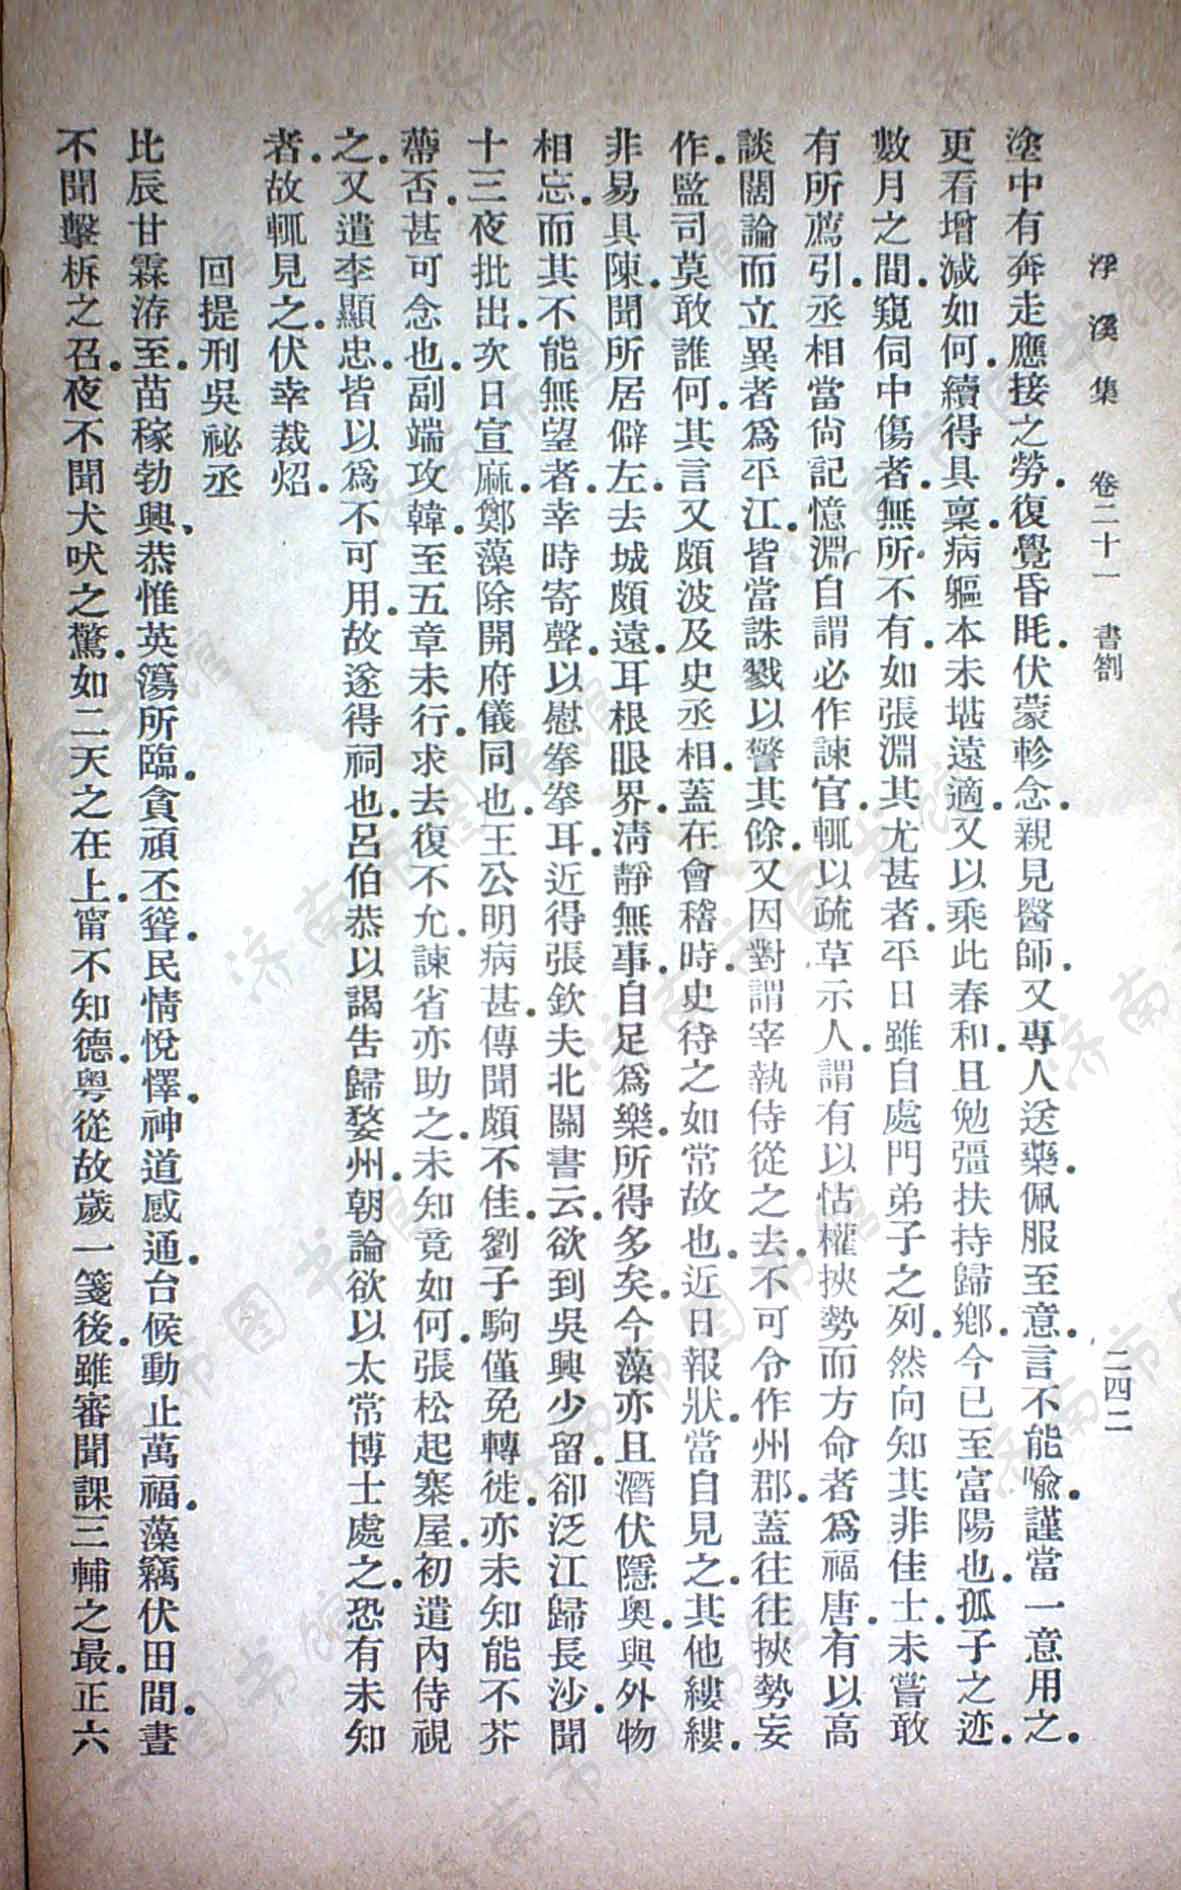 浮溪集 卷二十一 書劄 二四二
塗中有奔走應接之勞.復覺昏眊.伏蒙軫念.親見醫師.又專人送藥.佩服至意.言不能喩.謹當一意用之.
更看增減如何.續得具稟.病軀本未堪遠適.又以乘此春和.且勉彊扶持歸鄉.今已至富陽也.孤子之迹.
數月之間.窺伺中傷者.無所不有.如張淵其尤甚者.平日雖自處門弟子之列.然向知其非佳士.未嘗敢
有所薦引.丞相當尙記憶.淵自謂必作諫官.輒以疏草示人.謂有以怙權挾勢而方命者爲福唐.有以高
談闊論而立異者爲平江.皆當誅戮以警其餘.又因對.謂宰執侍從之去.不可令作州郡.蓋往往挾勢妄
作.監司莫敢誰何.其言又頗波及史丞相.蓋在會稽時.史待之如常故也.近日報狀.當自見之.其他縷縷.
非易具陳.聞所居僻左.去城頗遠.耳根眼界.清靜無事.自足爲樂.所得多矣.今藻亦且潛伏隱奧.與外物
相忘.而其不能無望者.幸時寄聲.以慰拳拳耳.近得張欽夫北關書云.欲到吳興少留.卻泛江歸長沙.聞
十三夜批出.次日宣麻.鄭藻除開府儀同也.王公明病甚.傳聞頗不佳.劉子駒僅免轉徙.亦未知能不芥
蔕否.甚可念也.副端攻韓.至五章未行.求去復不允.諫省亦助之.未知竟如何.張松起寨屋.初遣內侍視
之.又遣李顯忠.皆以爲不可用.故遂得祠也.呂伯恭以謁吿歸婺州.朝論欲以太常博士處之.恐有未知
者.故輒見之.伏幸裁炤.
回提刑吳祕丞
比辰甘霖洊至.苗稼勃興.恭惟英簜所臨.貪頑丕聳.民情悅懌.神道感通.台候動止萬福.藻竊伏田間.晝
不聞擊柝之召.夜不聞犬吠之驚.如二天之在上.甯不知德.粤從故歲一箋後.雖審聞課三輔之最.正六